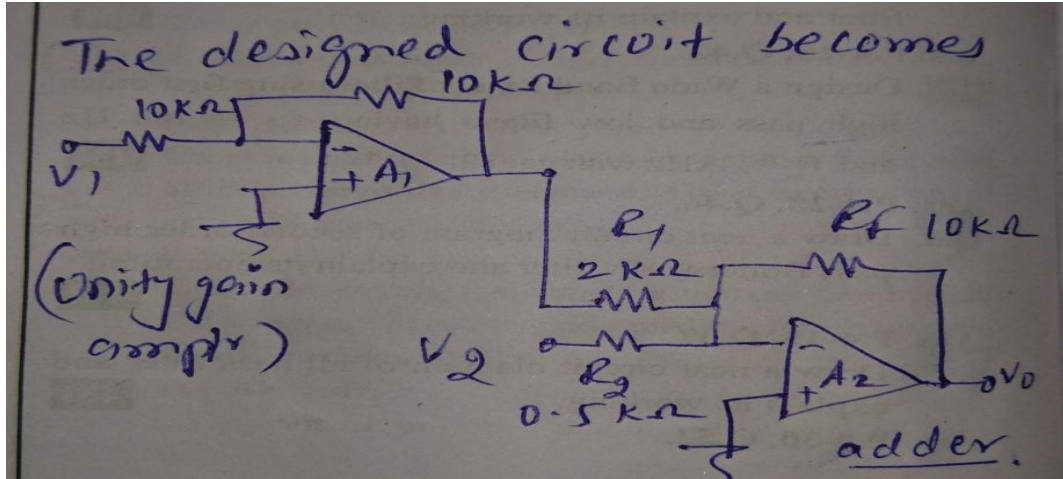 The designed circuit becomes
10KΩ
10KΩ
V1
-
+
A1
(Unity gain
amplr)
R1
2KΩ
Rf 10KΩ
V2
R2
0.5KΩ
-
+
A2
V0
adder.